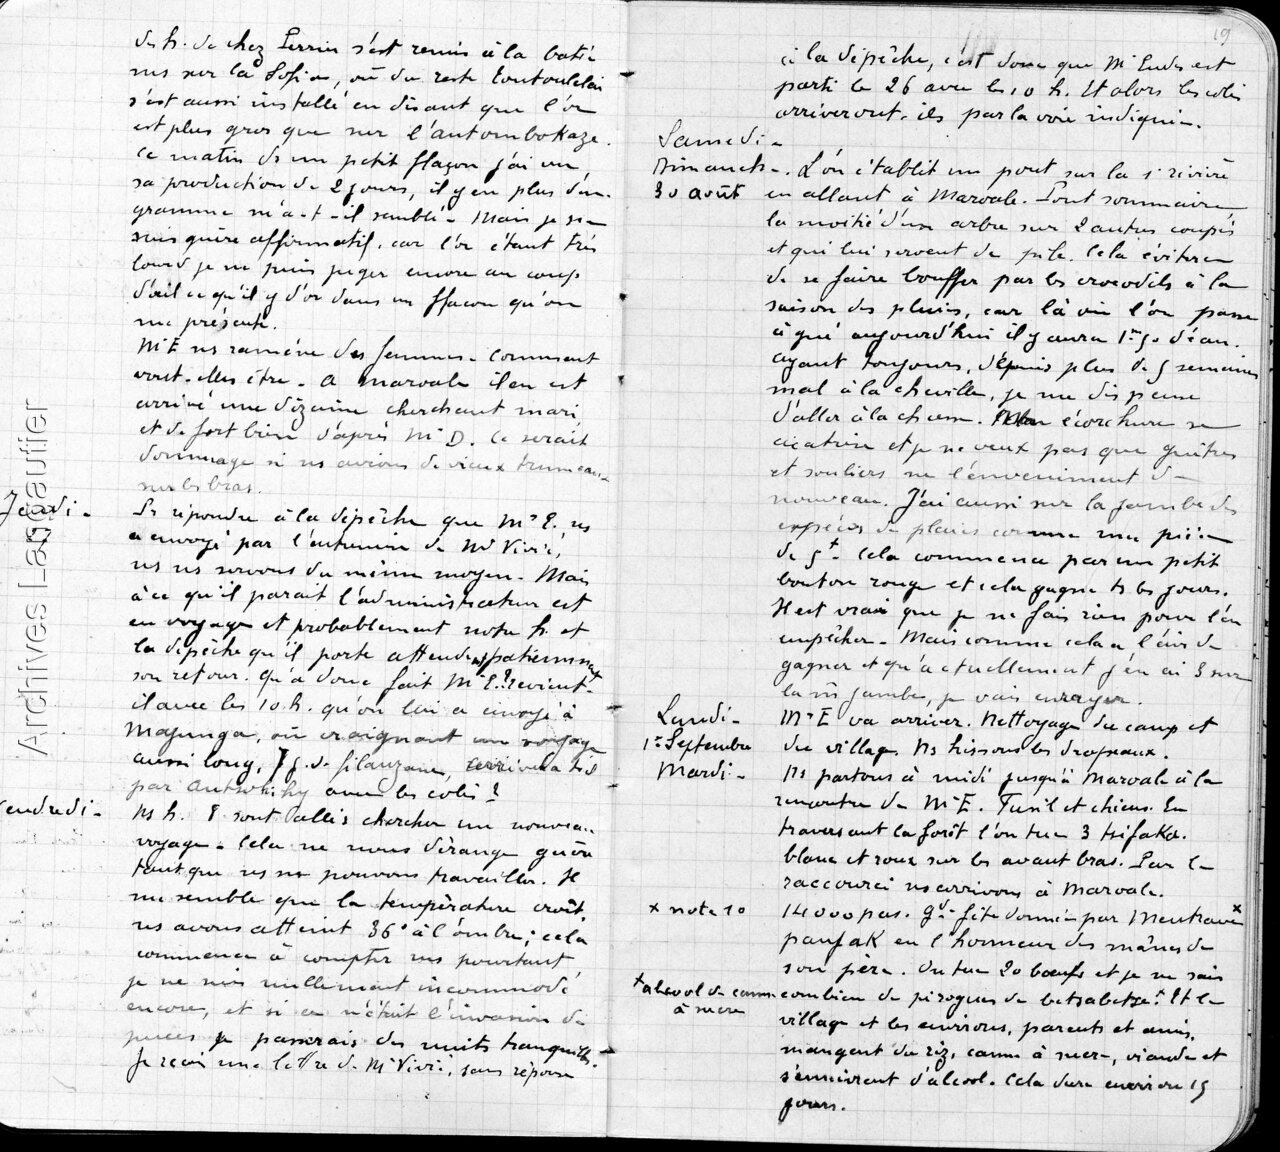 des h. de chez Perrin s'est remis à la baté
ns sur la Sofia, où du reste
s'est aussi installé en disant que l'or
est plus gros que sur l'antombokaze.
Ce matin ds un petit flaçon j'ai vu
sa production de 2 jours, il y en plus d'un
gramme m'a-t-il semblé. Mais je ne
suis guère affirmatif. car l'or étant très
lourd je ne puis juger encore au coup
d'œil ce qu'il y d'or dans un flacon qu'on
me présente.
Mr E ns ramène des femmes. Comment
vont-elles être. A Marvale il en est
arrivé une dizaine cherchant mari
et de fort bien d'après Mr D. Ce serait
dommage si ns avions de vieux trumeaux
sur les bras.
Jeudi -
Ds répondre à la dépêche que Mr E. ns
a envoyé par l'entremise de Mr Vivié,
ns ns servons du même moyen. Mais
à ce qu'il parait l'administrateur est
en voyage et probablement notre h. et
la dépêche qu'il porte attendent patiemment
son retour. Qu'a donc fait Mr E.? revient-
il avec les 10 h. qu'on lui a envoyé à
Majunga, où craignant un voyage
aussi long, 7 j. de filanzane, arrivera t-il
par Antsohihy avec les colis?
Vendredi -
Ns h. 8 sont allés chercher un nouveau
voyage. Cela ne nous dérange qu'en
tant que ns ne pouvons travailler. Il
me semble que la température croît.
ns avons atteint 36° à l'ombre; cela
commence à compter ns pourtant
je ne suis nullement incommodé
encore, et si ce n'était l'invasion de
puces je passerais des nuits tranquilles.
Je reçois une lettre de Mr Vivié, sans réponse
19
à la dépêche, c'est donc que Mr Eudes est
parti le 26 avec les 10 h. Et alors les colis
arriveront-ils par la voie indiquée.
Samedi -
Dimanche -
30 août
L'on établit un pont sur la s. rivière
en allant à Marvale. Pont sommaire
la moitié d'un arbre sur 2 autres coupés
et qui lui servent de pile. Cela évitera
de se faire bouffer par les crocodils à la
saison des pluies, car là où l'on passe
à gué aujourd'hui il y aura 1m50 d'eau.
ayant toujours, depuis plus de 5 semaines
mal à la cheville, je me dispense
d'aller à la chasse. Mon écorchure se
cicatrise et je ne veux pas que guêtres
et souliers ne l'enveniment de
nouveau. J'ai aussi sur la jambe des
espèces de plaies comme une pièce
de 5f. Cela commence par un petit
bouton rouge et cela gagne ts les jours.
Il est vrai que je ne fais rien pour l'en
empêcher. Mais comme cela a l'air de
gagner et qu'actuellement j'en ai 3 sur
la m jambe, je vais enrayer.
Lundi -
1er Septembre
Mr E va arriver. Nettoyage du camp et
du village. Ns hissons les drapeaux.
Mardi -
Ns partons à midi jusqu'à Marvale à la
rencontre de Mr E. Fusil et chiens. En
traversant la forêt l'on tue 3 tsifaka.
blanc et roux sur les avant bras. Par le
raccourci ns arrivons à Marvale.
x note 10
14000 pas. Gde fête donnée par x
panjak en l'honneur des mânes de
son père. On tue 20 bœufs et je ne sais
combien de pirogues de betsabetse.x Et le
x alcool de canne
à sucre
village et les environs, parents et amis,
mangent du riz, canne à sucre, viande et
s'ennivrent d'alcool. Cela dura environ 15
jours.
Archives Lagautier